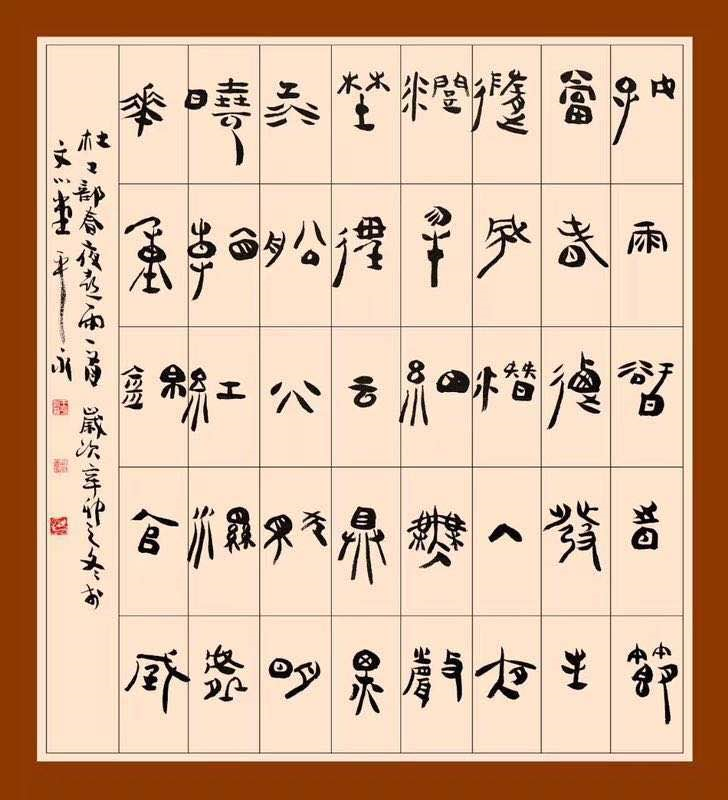 好雨知時節
當春乃發生
隨風潛入夜
潤物細無聲
野徑雲俱黑
江船火獨明
曉看紅濕處
花重錦官城
杜工部春夜喜雨一首 歲次辛卯之冬於
文心堂